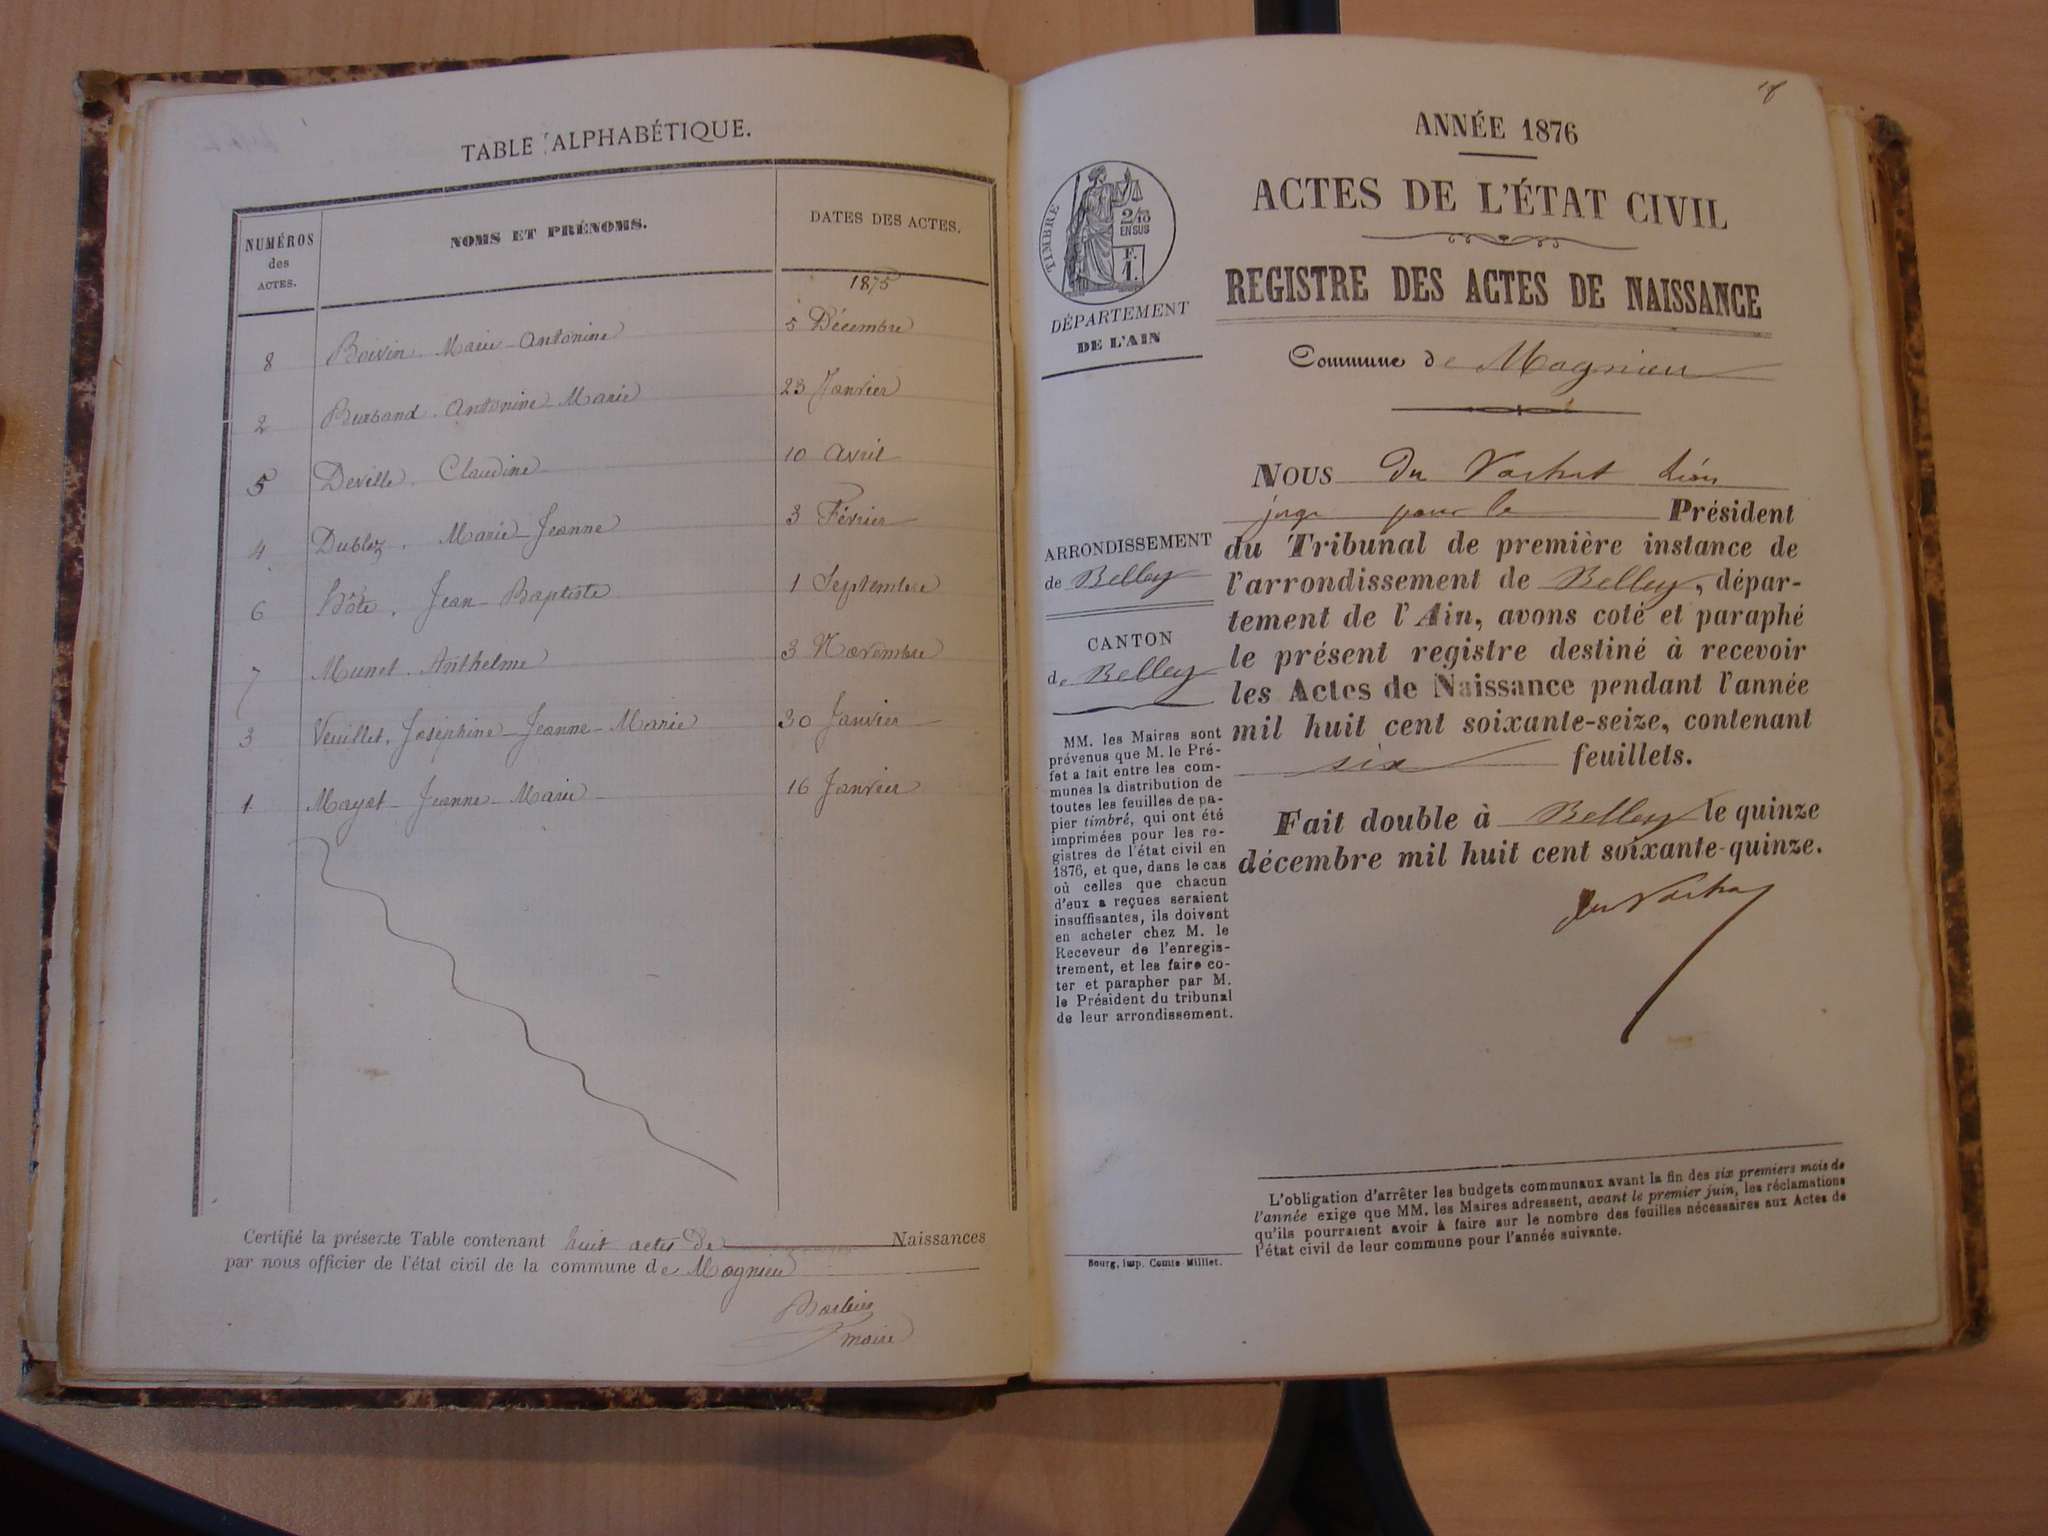 TABLE ALPHABÉTIQUE.
NUMÉROS
des
ACTES.
NOMS ET PRÉNOMS.
DATES DES ACTES.
1875
8 Boivin Marie-Antonine 5 Décembre
2 Burband Antonine-Marie 23 Janvier
5 Deville Claudine 10 Avril
4 Dubloz Marie-Jeanne 3 Février
6 Hôte Jean-Baptiste 1 Septembre
7 Munet Anthelme 3 Novembre
3 Veuillet Joséphine-Jeanne-Marie 30 Janvier
1 Mayet Jeanne-Marie 16 Janvier
Certifié la présente Table contenant huit actes de Naissances
par nous officier de l'état civil de la commune de Magnieu
Barbier
maire
18
ANNÉE 1876
ACTES DE L'ÉTAT CIVIL
REGISTRE DES ACTES DE NAISSANCE
TIMBRE
2/10
EN SUS
F.
1.
DÉPARTEMENT
DE L'AIN
Commune de Magnieu
NOUS Du Vachat Léon
juge pour le Président
du Tribunal de première instance de
l'arrondissement de Belley, dépar-
tement de l'Ain, avons coté et paraphé
le présent registre destiné à recevoir
les Actes de Naissance pendant l'année
mil huit cent soixante-seize, contenant
six feuillets.
Fait double à Belley le quinze
décembre mil huit cent soixante-quinze.
du Vachat
ARRONDISSEMENT
de Belley
CANTON
de Belley
MM. les Maires sont
prévenus que M. le Pré-
fet a fait entre les com-
munes la distribution de
toutes les feuilles de pa-
pier timbré, qui ont été
imprimées pour les re-
gistres de l'état civil en
1876, et que, dans le cas
où celles que chacun
d'eux a reçues seraient
insuffisantes, ils doivent
en acheter chez M. le
Receveur de l'enregis-
trement, et les faire co-
ter et parapher par M.
le Président du tribunal
de leur arrondissement.
L'obligation d'arrêter les budgets communaux avant la fin des six premiers mois de
l'année exige que MM. les Maires adressent, avant le premier juin, les réclamations
qu'ils pourraient avoir à faire sur le nombre des feuilles nécessaires aux Actes de
l'état civil de leur commune pour l'année suivante.
Bourg, imp. Comte-Milliet.